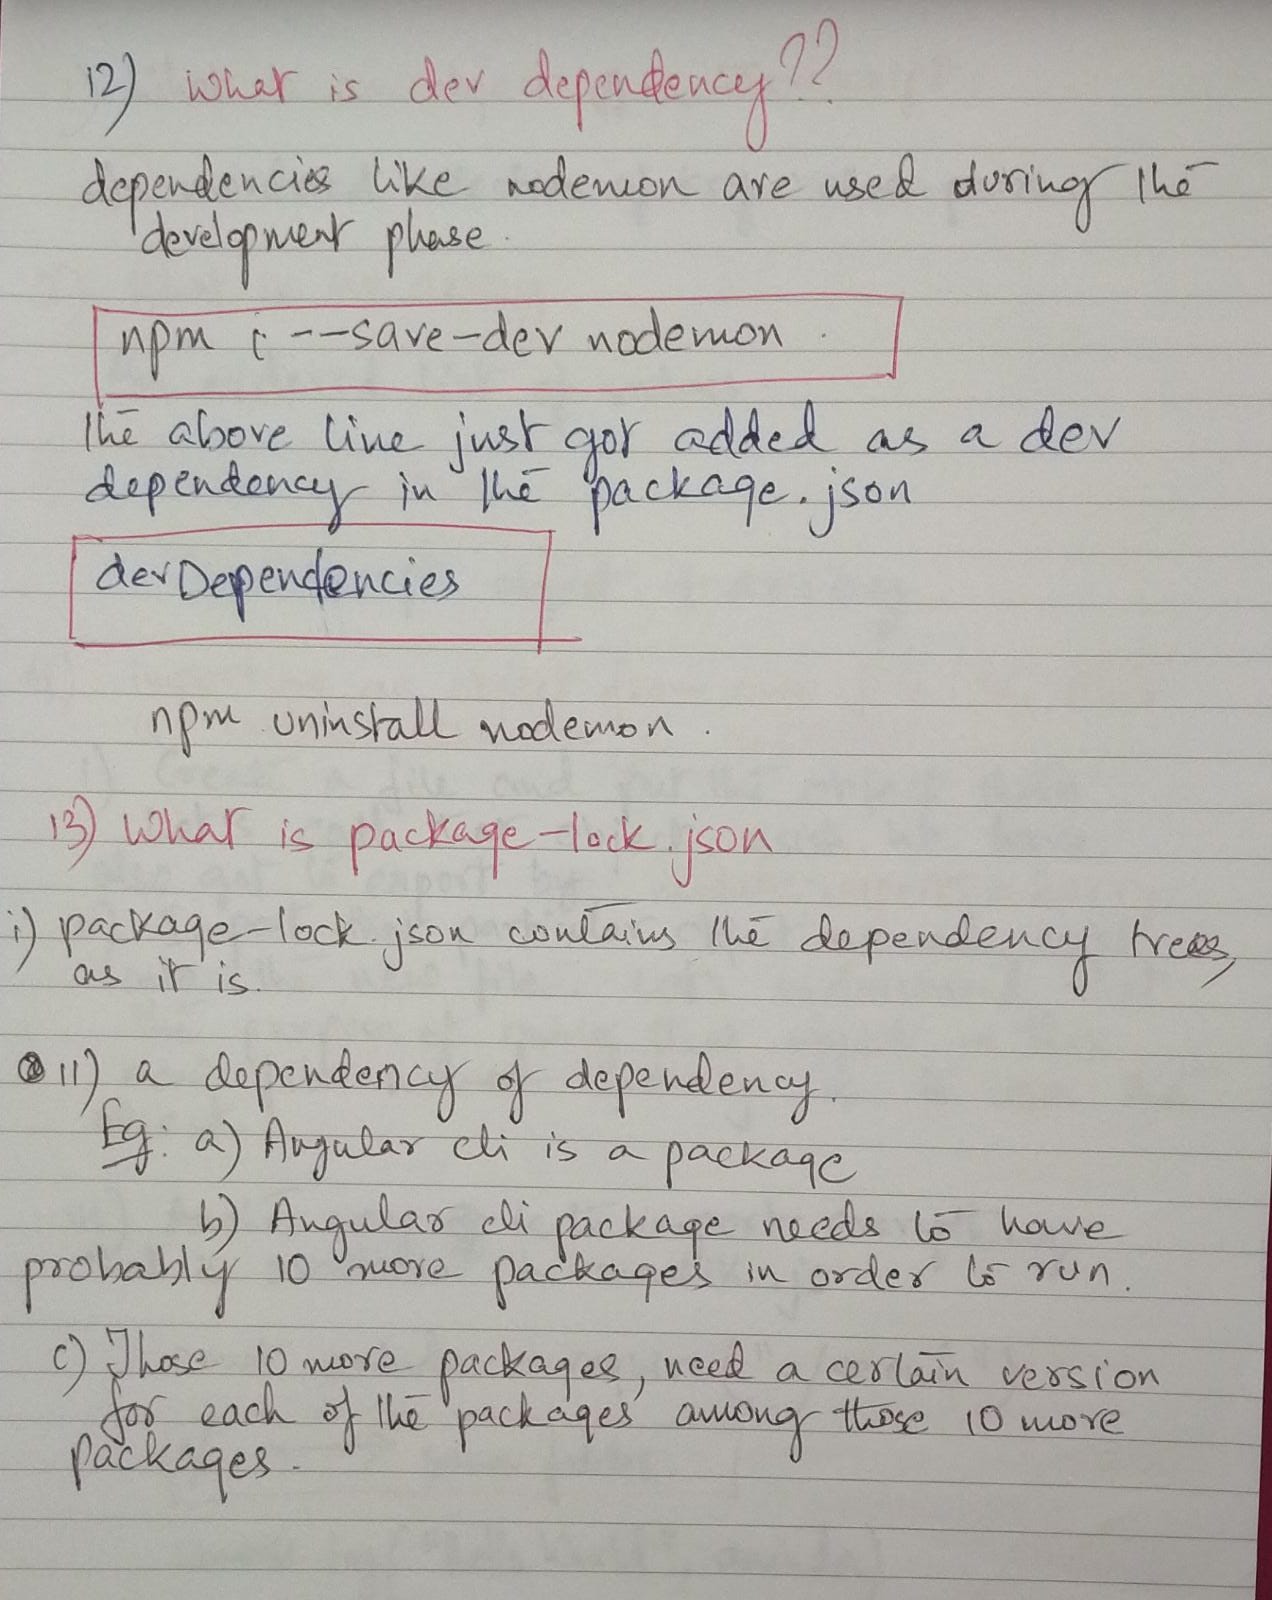 12) What is dev dependency??
dependencies like nodemon are used during the
development phase.
npm i --save-dev nodemon.
the above line just got added as a dev
dependency in the package.json
devDependencies
npm uninstall nodemon.
13) What is package-lock.json
i) package-lock.json contains the dependency trees,
as it is.
ii) a dependency of dependency.
Eg: a) Angular cli is a package
b) Angular cli package needs to have
probably 10 more packages in order to run.
c) Those 10 more packages, need a certain version
for each of the packages among those 10 more
packages.